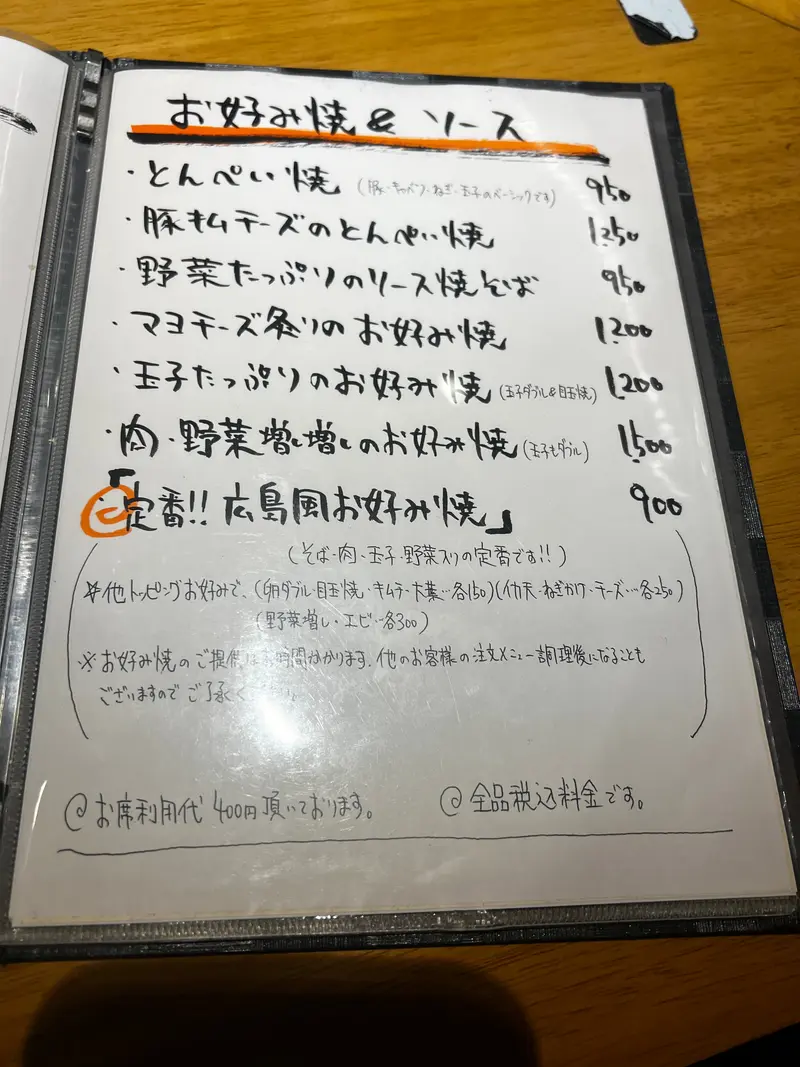 お好み焼 & ソース
・とんぺい焼 (豚・キャベツ・ねぎ・玉子のベーシックです) 950
・豚キムチーズのとんぺい焼 1,250
・野菜たっぷりのソース焼そば 950
・マヨチーズ炙りのお好み焼 1,200
・玉子たっぷりのお好み焼 (玉子ダブル&目玉焼) 1,200
・肉・野菜増し増しのお好み焼 (玉子もダブル) 1,500
・「定番!! 広島風お好み焼」 900
(そば・肉・玉子・野菜入りの定番です!!)
※他トッピングお好みで、(卵ダブル・目玉焼・キムチ・大葉…各150)(イカ天・ねぎかけ・チーズ…各250)
(野菜増し・エビ…各300)
※お好み焼のご提供はお時間かかります。他のお客様の注文メニュー調理後になることも
ございますのでご了承ください。
@お席利用代 400円頂いております。 @全品税込料金です。